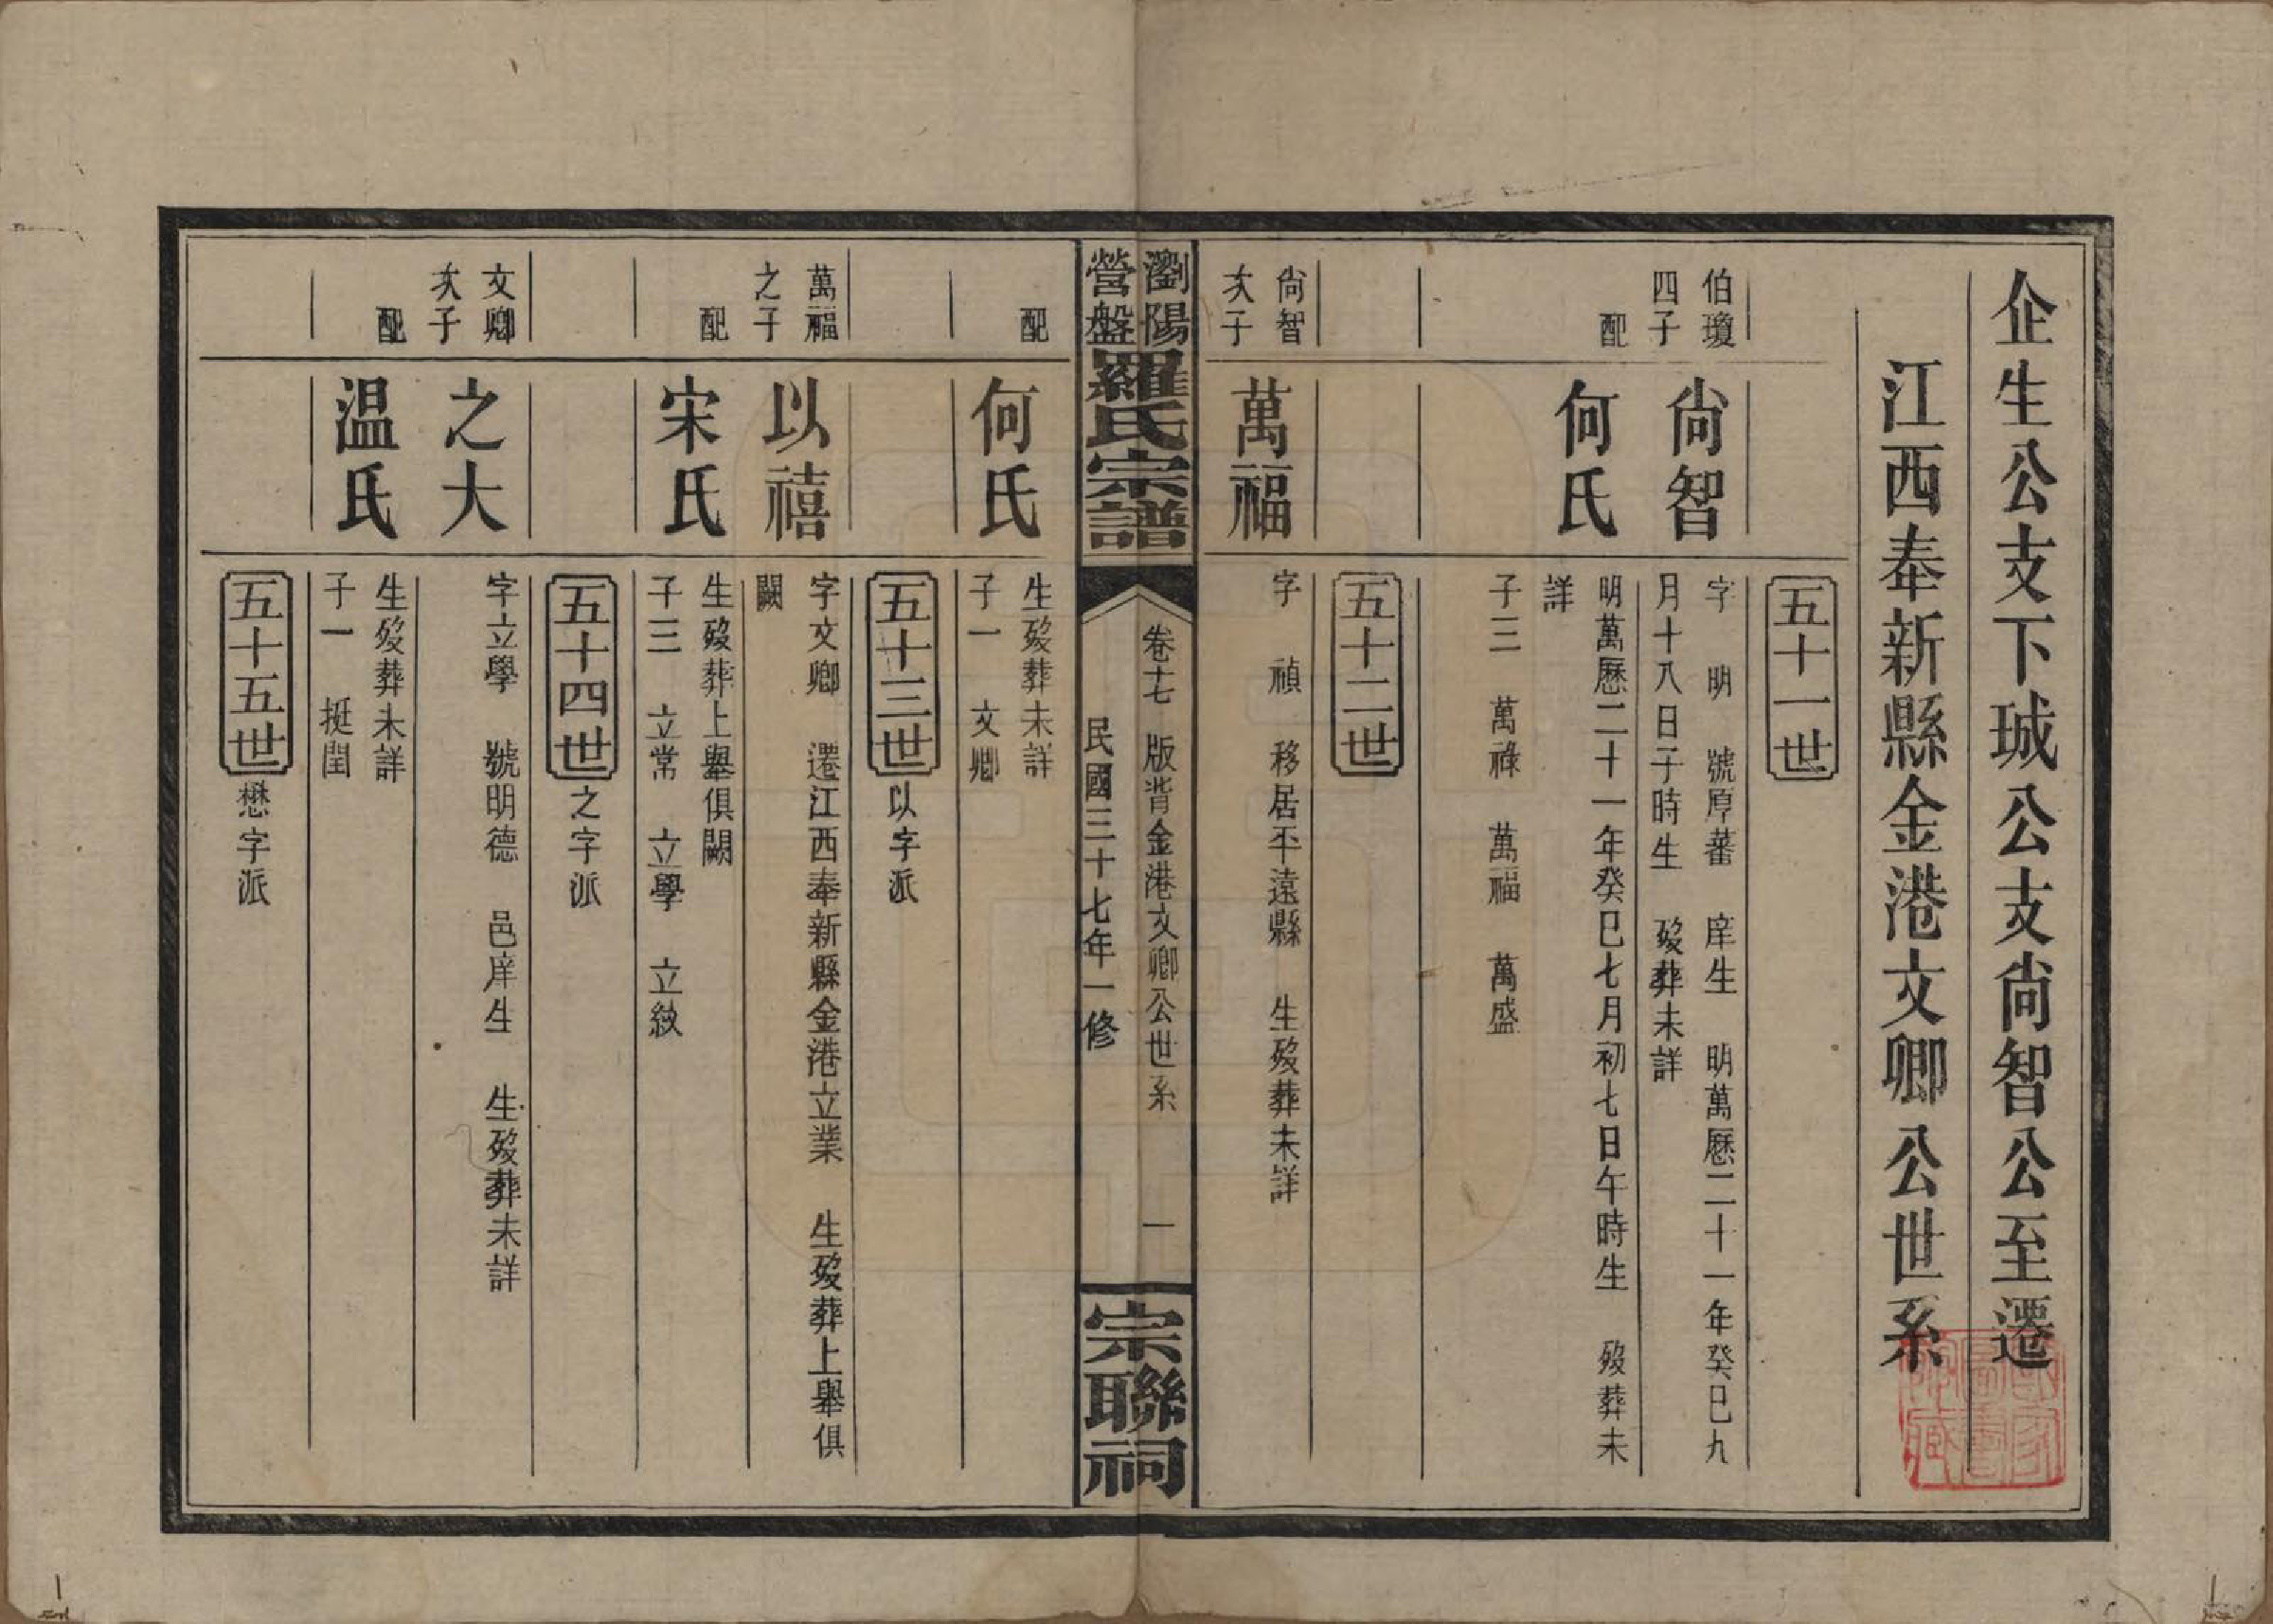 企生公支下珹公支尙智公至遷
江西奉新縣金港文卿公世系
五十一世
伯瓊四子
尙智
字 明 號厚蕃 庠生 明萬歷二十一年癸巳九
月十八日子時生 歿葬未詳
配
何氏
明萬歷二十一年癸巳七月初七日午時生 歿葬未
詳
子三 萬祿 萬福 萬盛
五十二世
尙智次子
萬福
字 禎 移居平遠縣 生歿葬未詳
瀏陽營盤羅氏宗譜
卷十七 版背金港文卿公世系 一
民國三十七年一修
宗聯祠
配
何氏
生歿葬未詳
子一 文卿
五十三世 以字派
萬福之子
以禧
字文卿 遷江西奉新縣金港立業 生歿葬上舉俱
闕
配
宋氏
生歿葬上舉俱闕
子三 立常 立學 立紋
五十四世 之字派
文卿次子
之大
字立學 號明德 邑庠生 生歿葬未詳
配
温氏
生歿葬未詳
子一 挺閏
五十五世 懋字派